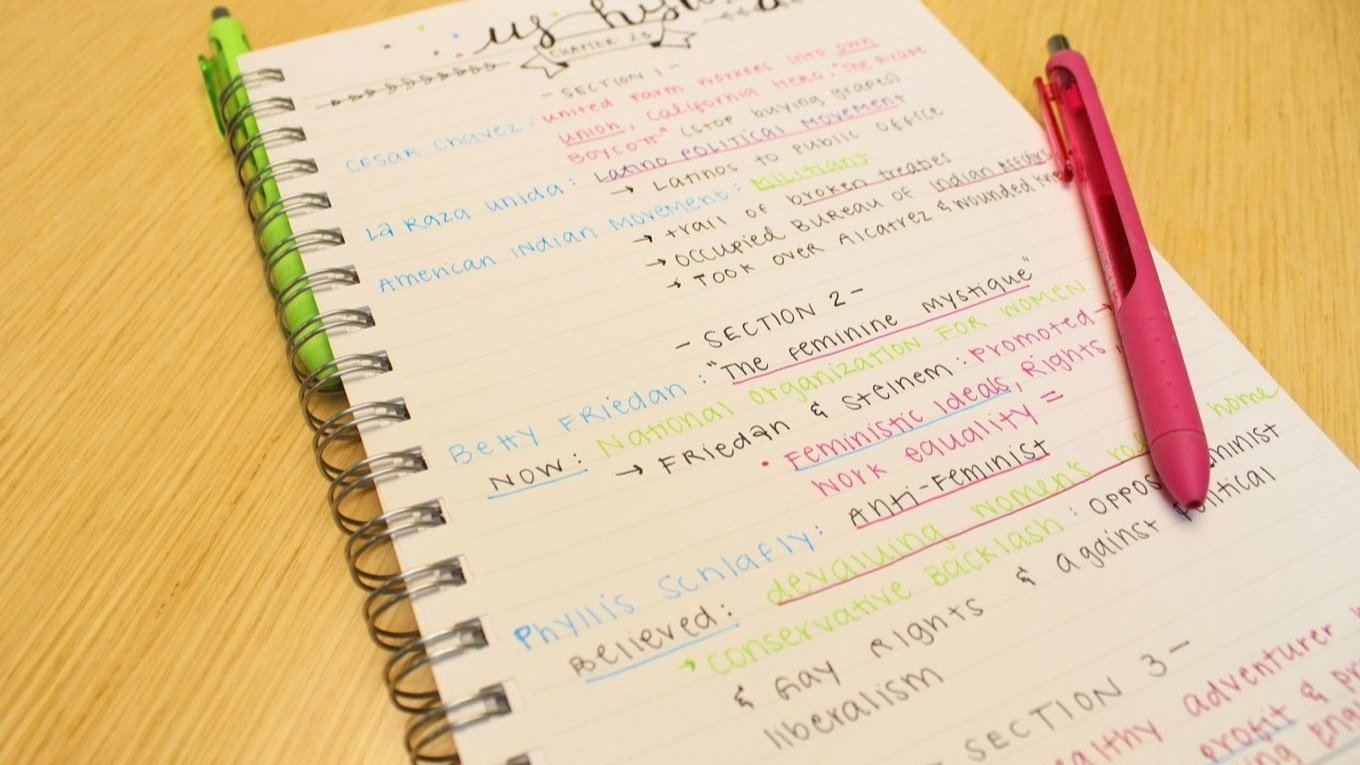 us
CHAPTER 28
- SECTION 1 -
Cesar Chavez: united Farm workers into own
union, California Hero, "The Grape
Boycott" (stop buying grapes)
La Raza Unida: Latino Political Movement
→ Latinos to public office
American Indian Movement: Militiant
→ trail of broken treaties
→ occupied Bureau of Indian
→ Took over Alcatrez & wounded
- SECTION 2 -
Betty Friedan: "The feminine mystique"
NOW: National Organization For women
→ Friedan & Steinem: Promoted →
• Feministic Ideals, Rights,
work equality =
Phyllis Schlafly: Anti-Feminist
Believed: devaluing women's home
→ conservative Backlash: oppos
& Gay Rights & against political
liberalism
SECTION 3 -
adventurer
profit &